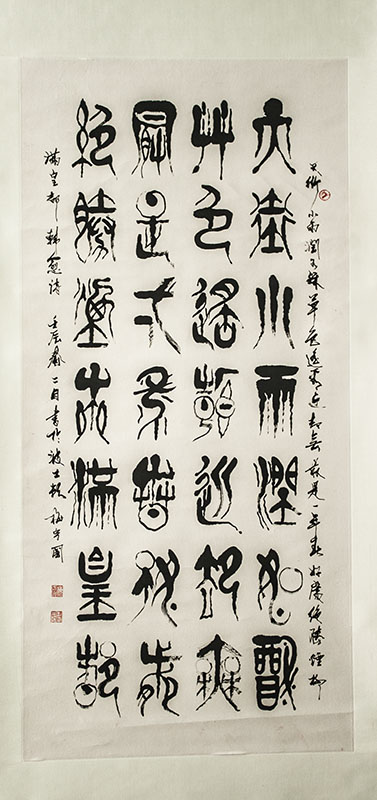 天街小雨潤如酥草色遙看近却無最是一年春好處絕勝煙柳
天街小雨潤如酥
艸色遙看近卻無
最是弌年春好處
絕勝煙柳滿皇都
滿皇都 韓愈詩 壬辰歲二月書於波士頓